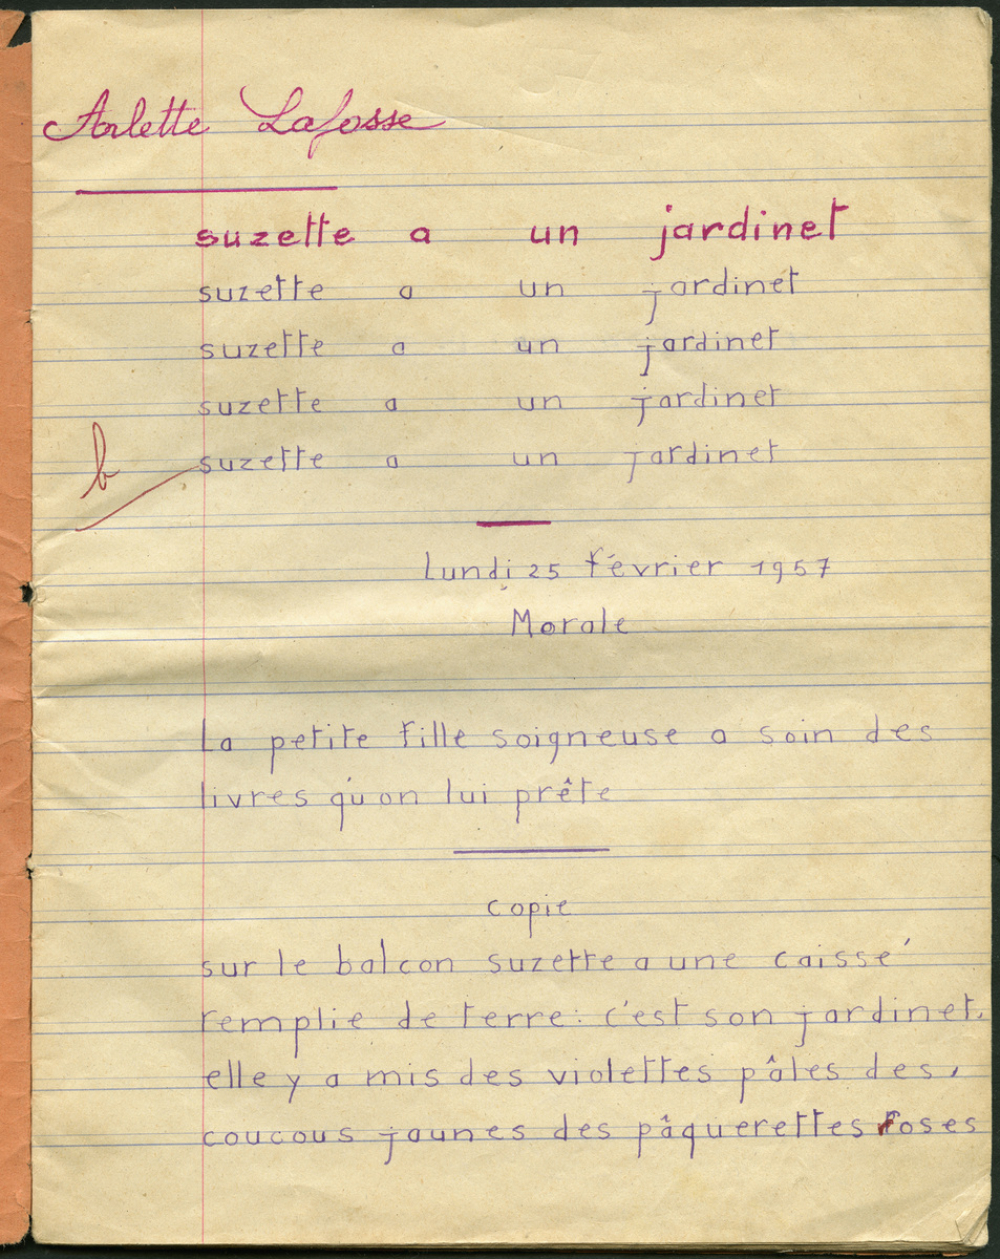 Arlette Lafosse
suzette a un jardinet
suzette a un jardinet
suzette a un jardinet
suzette a un jardinet
b suzette a un jardinet
Lundi 25 février 1957
Morale
La petite fille soigneuse a soin des
livres qu'on lui prête
copie
sur le balcon suzette a une caisse
remplie de terre: c'est son jardinet.
elle y a mis des violettes pâles des,
coucous jaunes des pâquerettes roses